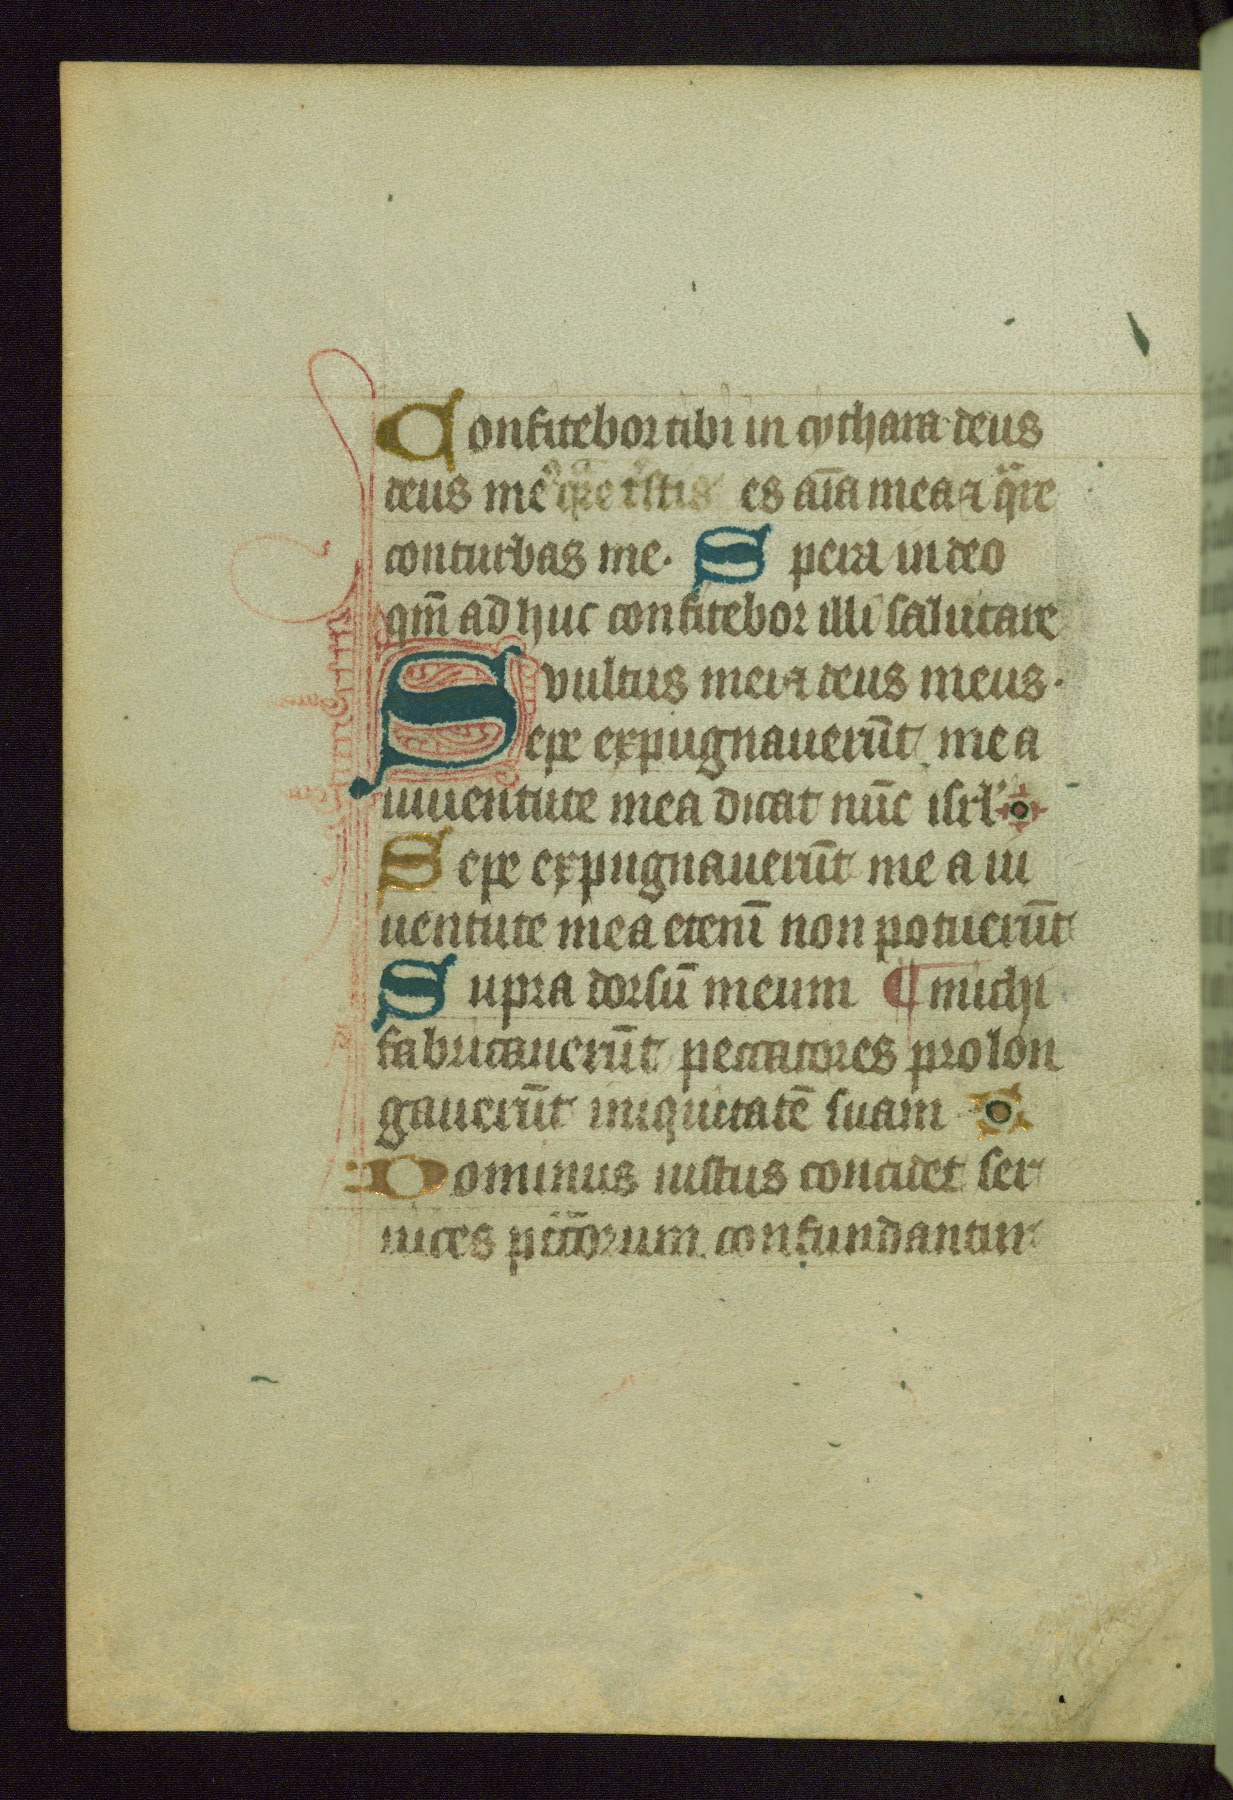 Confitebor tibi in cythara deus
deus me⁹ qͣre tͥstis es aīa mea ⁊ qͣre
conturbas me. Spera in deo
qm̄ ad huc confitebor illi salutare
vultus mei ⁊ deus meus.
Sepe expugnauerūt me a
iuuentute mea dicat nūc isrl'
Sepe expugnauerūt me a iu
uentute mea etenī non potuerūt
Supra dorsū meum ¶ michi
fabricauerūt peccatores prolon
gauerūt iniquitatē suam
Dominus iustus concidet ser
uices pctōrum confundantur